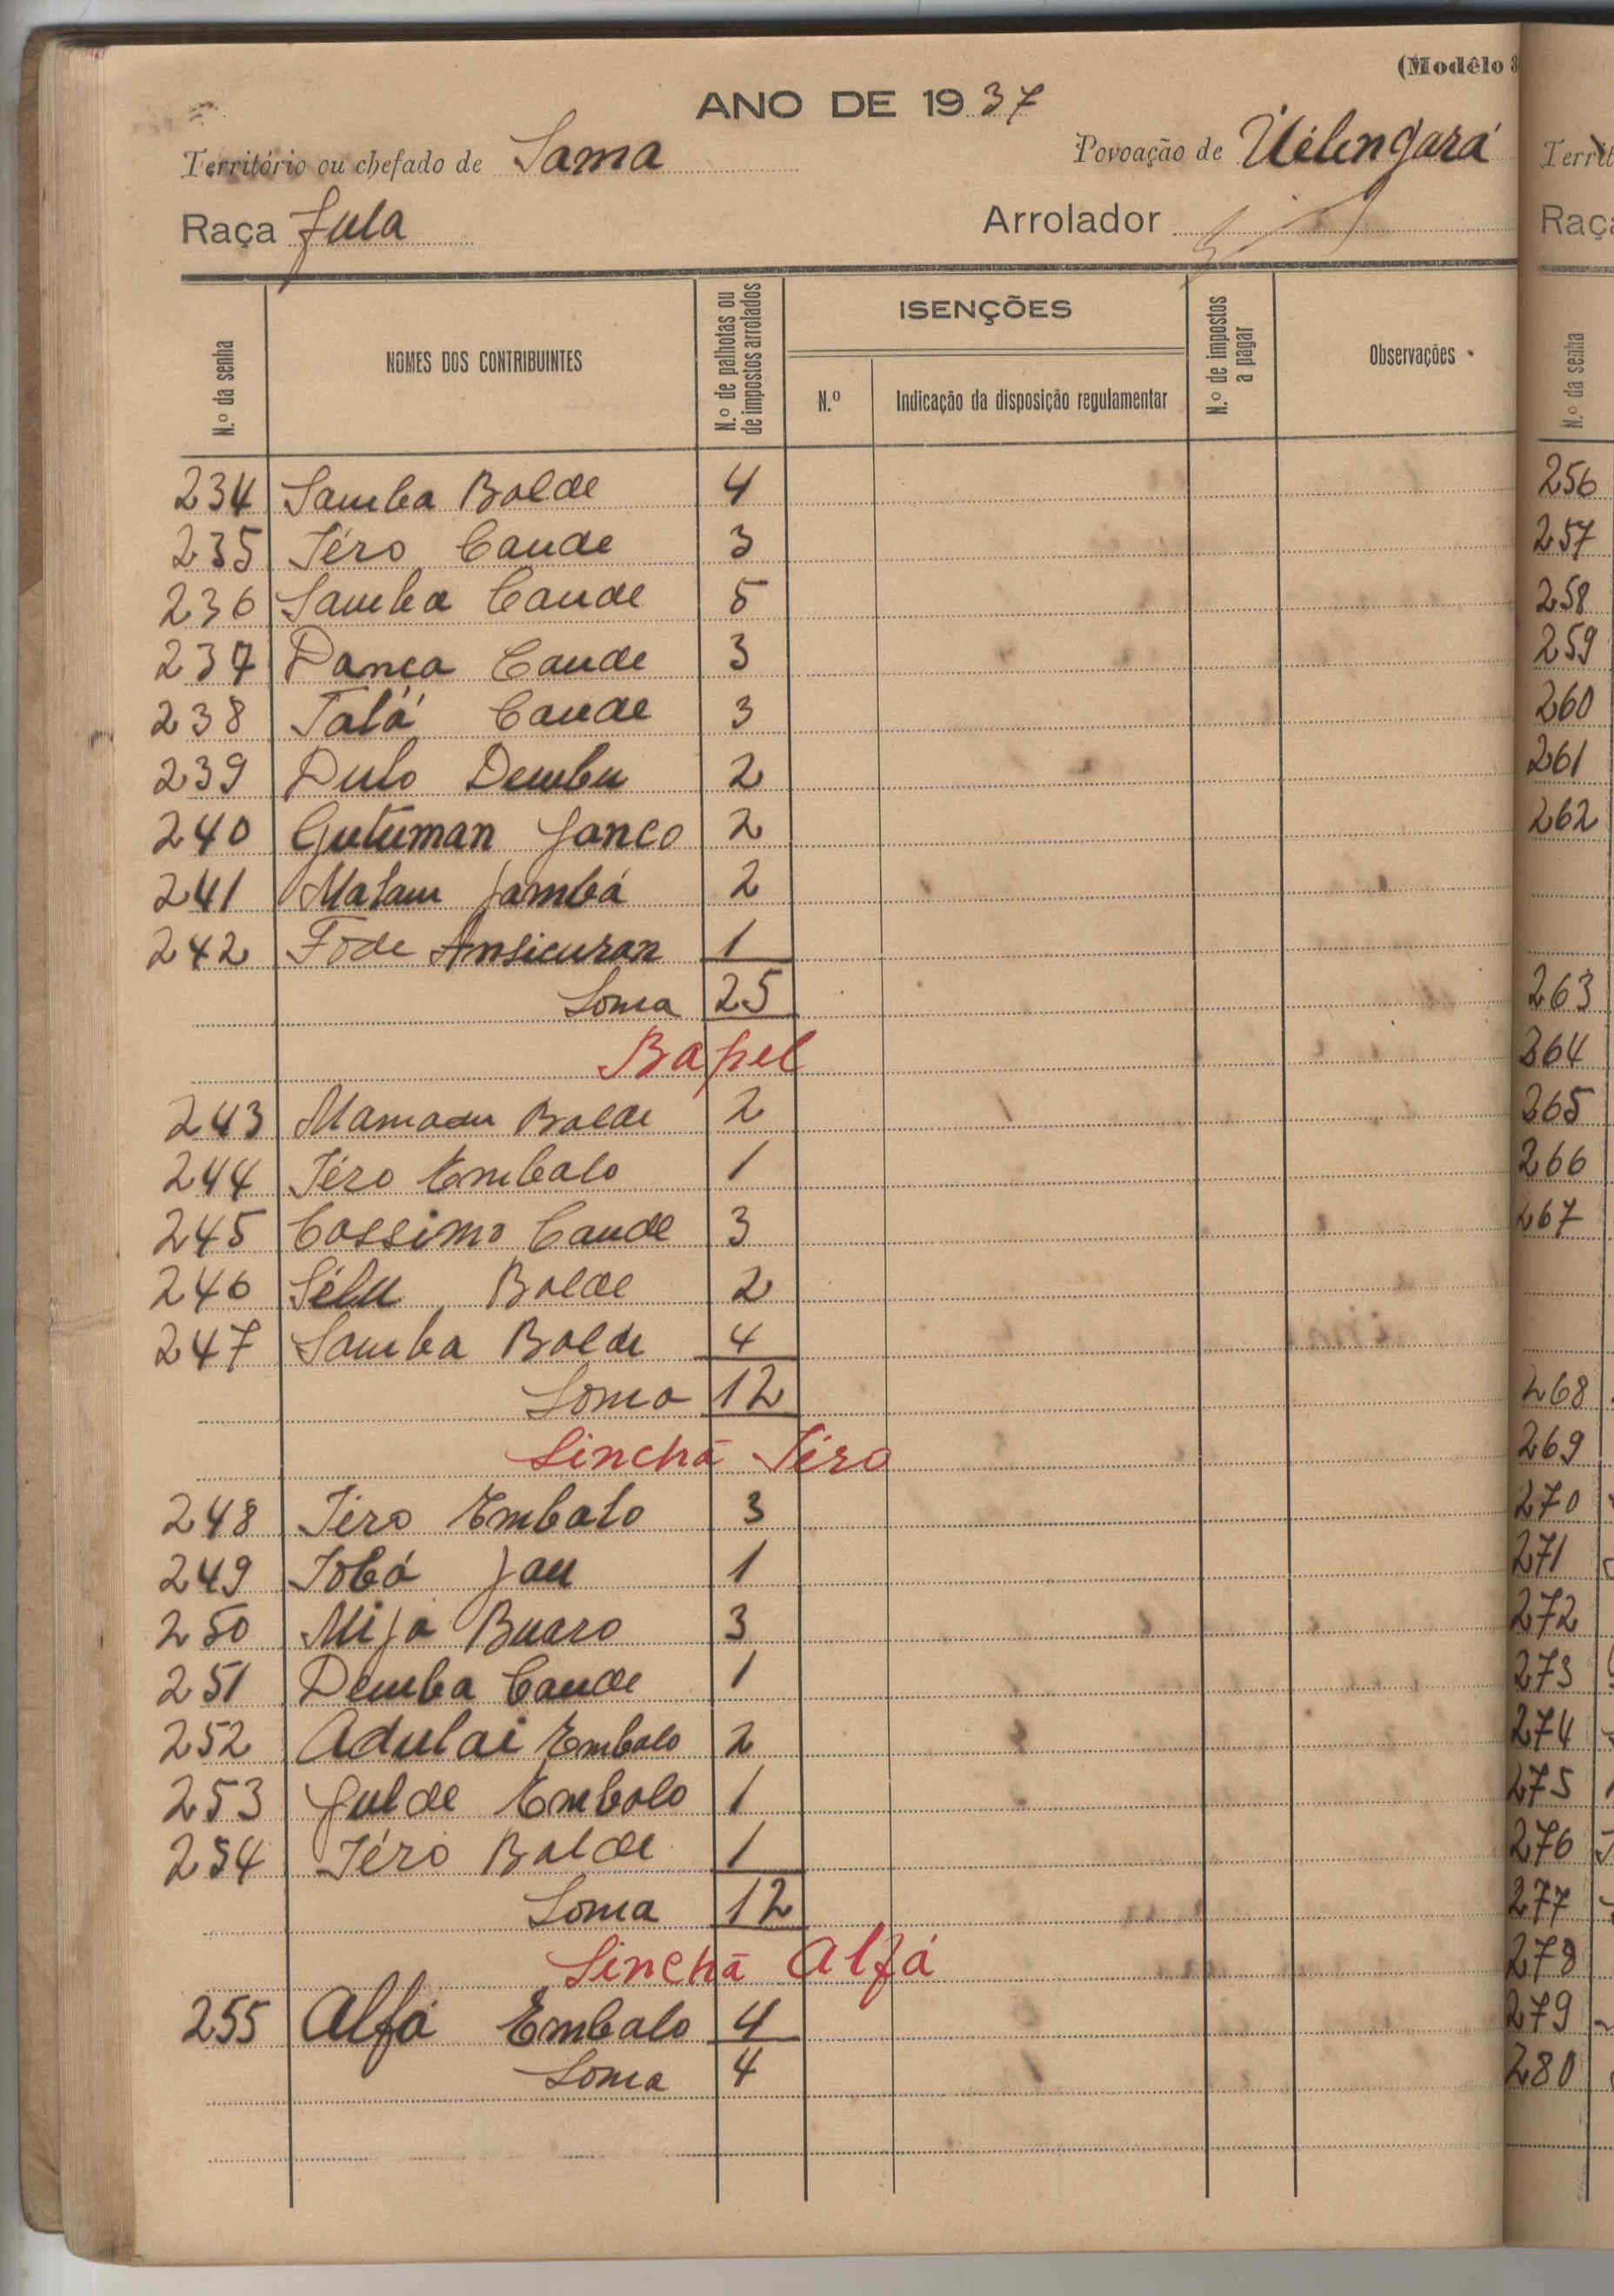 (Modêlo 3
ANO DE 1937
Território ou chefado de Sama
Povoação de Uélengará
Raça Fula
Arrolador
N.º da senha
NOMES DOS CONTRIBUINTES
N.º de palhotas ou de impostos arrolados
ISENÇÕES
N.º
Indicação da disposição regulamentar
N.º de impostos a pagar
Observações
234 Samba Balde 4
235 Iéro Cande 3
236 Samba Cande 5
237 Danca Cande 3
238 Talá Cande 3
239 Dulo Dembu 2
240 Gutuman Janco 2
241 Malam Jambá 2
242 Fode Ansicuran 1
Soma 25
Bapel
243 Mamadu Balde 2
244 Iéro Embalo 1
245 Cossimo Cande 3
246 Sélu Balde 2
247 Samba Balde 4
Soma 12
Sinchã Iéro
248 Iéro Embalo 3
249 Iobá Jau 1
250 Mija Buaro 3
251 Demba Cande 1
252 Adulai Embalo 2
253 Julde Embalo 1
254 Iéro Balde 1
Soma 12
Sinchã Alfá
255 Alfá Embalo 4
Soma 4
Territ
Raça
N.º da senha
256
257
258
259
260
261
262
263
264
265
266
267
268
269
270
271
272
273
274
275
276
277
278
279
280